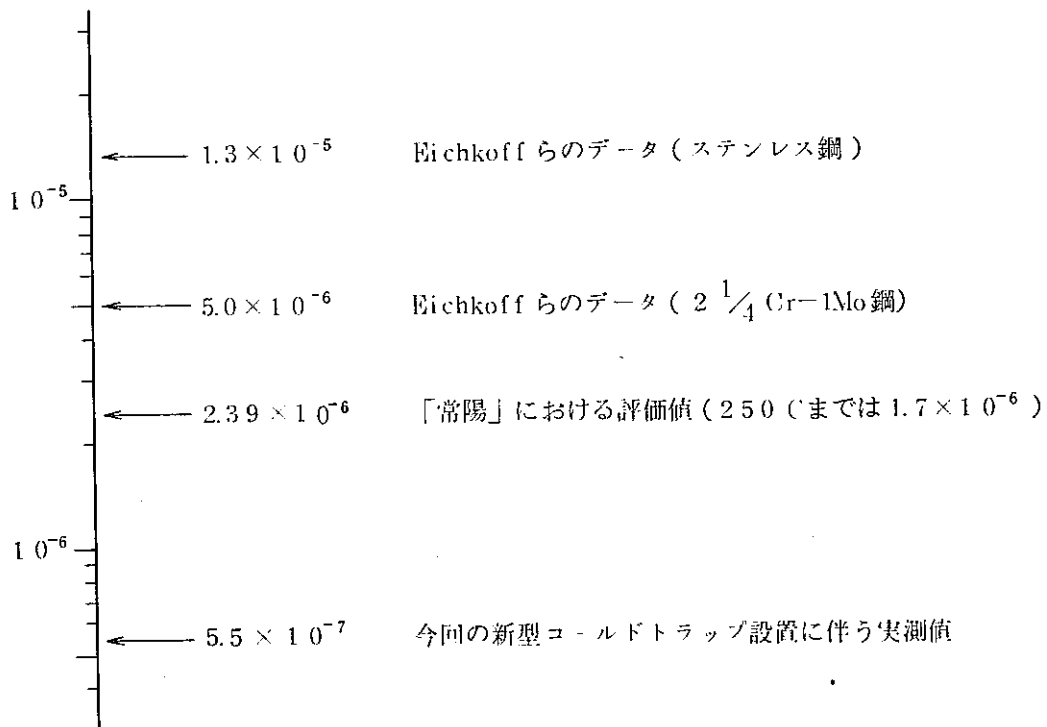 1.3×10⁻⁵ Eichkoffらのデータ(ステンレス鋼)
10⁻⁵
5.0×10⁻⁶ Eichkoffらのデータ(2 1/4 Cr-1Mo鋼)
2.39×10⁻⁶ 「常陽」における評価値(250℃までは1.7×10⁻⁶)
10⁻⁶
5.5×10⁻⁷ 今回の新型コールドトラップ設置に伴う実測値